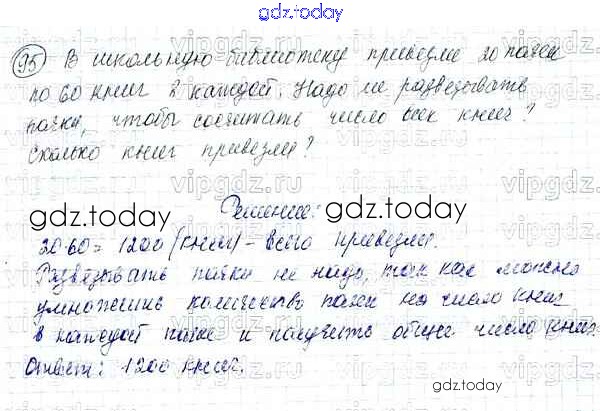 gdz.today
95 В школьную библиотеку привезли 20 пачек
по 60 книг в каждой. Надо ли развязывать
пачки, чтобы сосчитать число всех книг?
Сколько книг привезли?
Решение:
gdz.today gdz.today
20·60= 1200 (книг) - всего привезли.
Развязывать пачки не надо, так как можно
умножить количество пачек на число книг
в каждой пачке и получить общее число книг.
Ответ: 1200 книг.
gdz.today